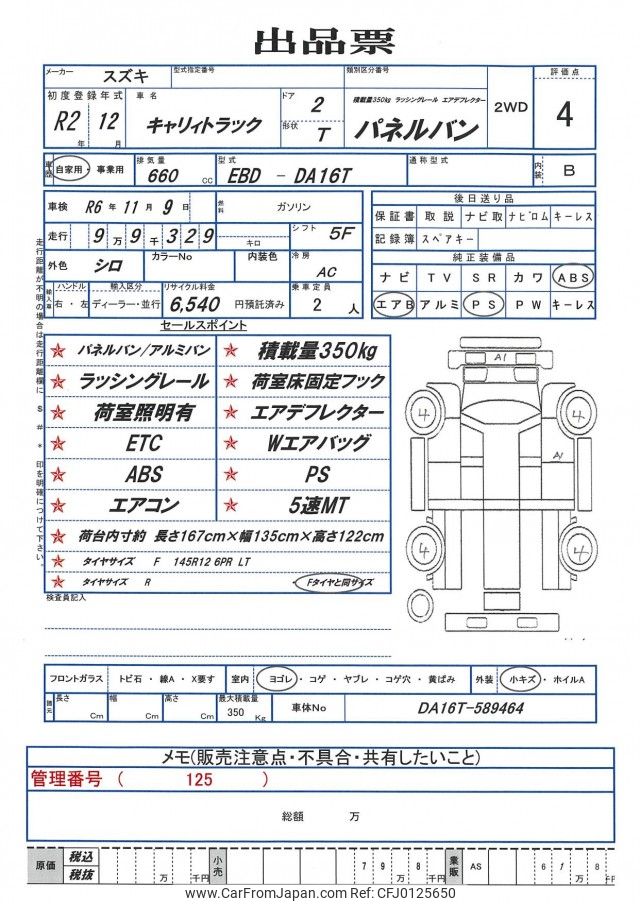 出品票
メーカー スズキ 型式指定番号 類別区分番号 評価点
初度登録年式 車名 ドア 2 積載量350kg ラッシングレール エアデフレクター 2WD 4
R2 年 12 月 キャリィトラック 形状 T パネルバン
車歴 自家用・事業用 排気量 660 CC 型式 EBD - DA16T 通称型式 内装 B
車検 R6 年 11 月 9 日 燃料 ガソリン 後日送り品
走行 9 万 9 千 3 2 9 キロ シフト 5F 保証書 取説 ナビ取 ナビロム キーレス
記録簿 スペアキー
外色 シロ カラーNo 内装色 冷房 AC 純正装備品
ナビ TV SR カワ ABS
輸入車 ハンドル 右・左 輸入区分 ディーラー・並行 リサイクル料金 6,540 円預託済み 乗車定員 2 人 エアB アルミ PS PW キーレス
セールスポイント
走行距離が不明の場合は走行距離欄に S # * 印を明確につけて下さい。
パネルバン/アルミバン 積載量350kg
ラッシングレール 荷室床固定フック
荷室照明有 エアデフレクター
ETC Wエアバッグ
ABS PS
エアコン 5速MT
荷台内寸約 長さ167cm×幅135cm×高さ122cm
タイヤサイズ F 145R12 6PR LT
タイヤサイズ R ・Fタイヤと同サイズ
A1
4 4
A1
4 4
検査員記入
フロントガラス トビ石・線A・X要す 室内 ヨゴレ・コゲ・ヤブレ・コゲ穴・黄ばみ 外装 小キズ・ホイルA
諸元 長さ Cm 幅 Cm 高さ Cm 最大積載量 350 Kg 車体No DA16T-589464
メモ(販売注意点・不具合・共有したいこと)
管理番号 ( 125 )
総額 万
原価 税込 税抜 万 千円 小売 7 9 万 8 千円 業販 AS 6 1 万 8 千円
www.CarFromJapan.com Ref: CFJ0125650